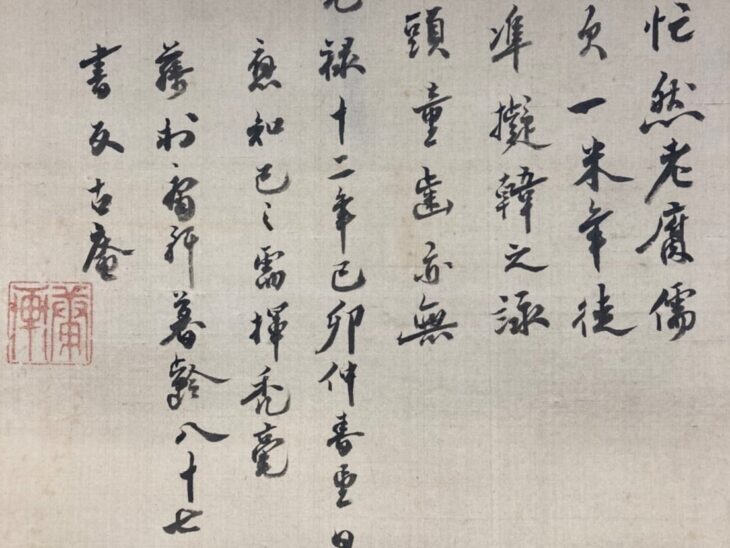 忙然老腐儒
欠一米年徒
準擬韓之詠
頭童齒亦無
元禄十二年己卯仲春望日
應知己之需揮禿毫
藤村庸軒暮齢八十七
書反古庵